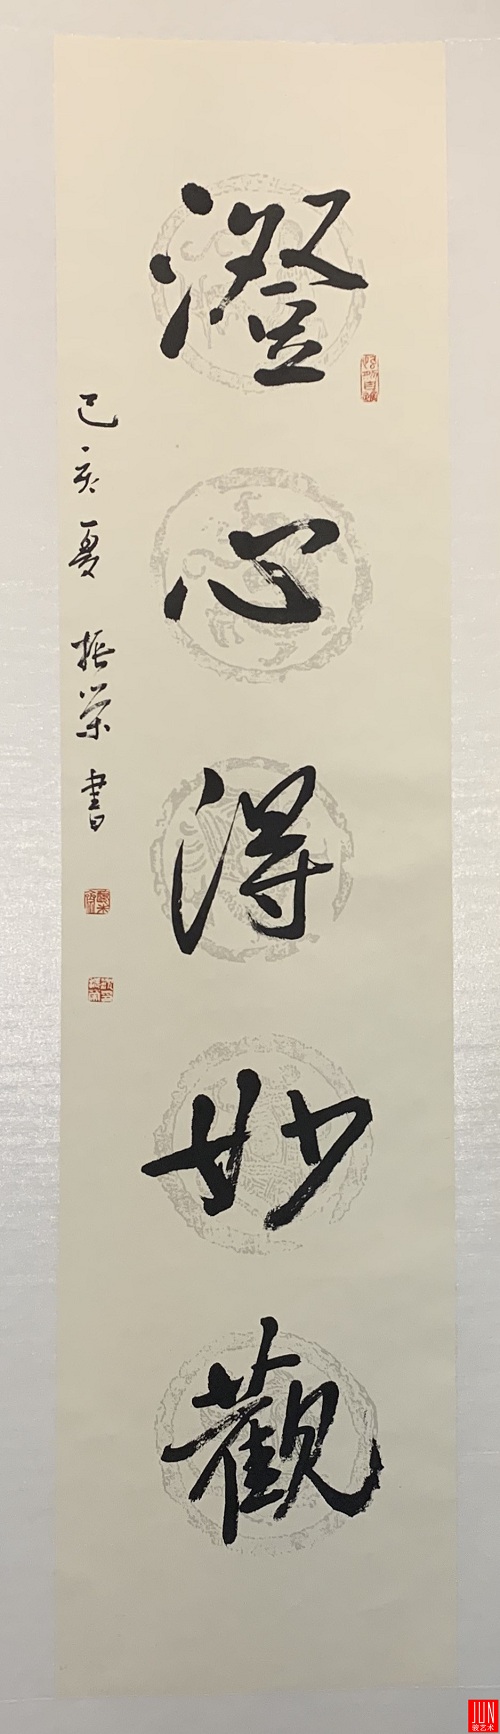 澄心得妙觀
己亥夏 振榮書
JUN
骏艺术